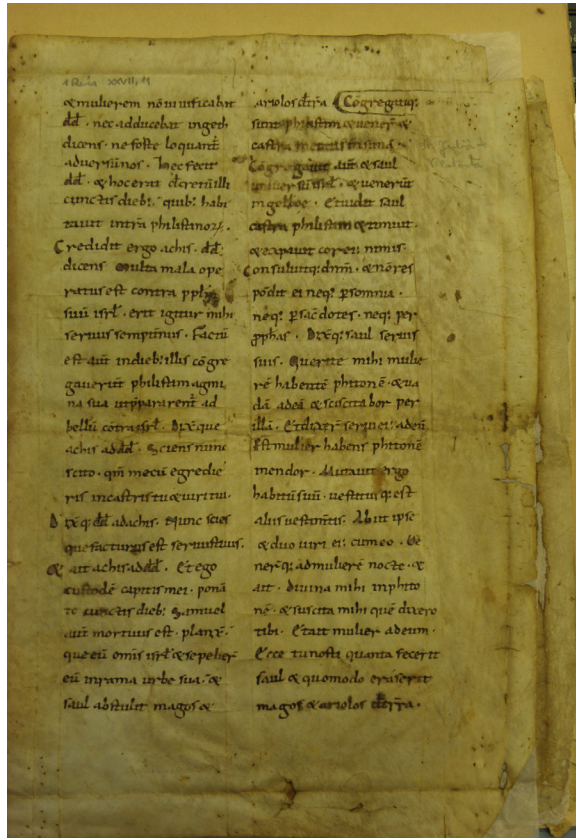 1 Reg XXVII, 11
& mulierem nō uiuificabat
dd̄. nec adducebat in geth
dicens. ne forte loquant̄
aduersū nos. hec fecit
dd̄. & hoc erat decretū illi
cunctis dieb: quib: habi
tauit intra philistinoꝝ.
Credidit ergo achis. dd̄.
dicens Multa mala ope
ratus est contra pplm̄
suū isrl̄. erit igitur mihi
seruus sempitnus. Factū
est aut̄ indieb: illis cōgre
gauerūt philistim agmi
na sua ut pparent̄ ad
bellū cōtra isrl̄. Dix̄ que
achis ad dd̄. Sciens nunc
scito. qm̄ mecū egredie
ris in castris tu & uiri tui.
Dix̄ q: dd̄ ad achis. Nunc scies
que facturus est seruus tuus.
& ait achis ad dd̄. Et ego
custodē capitis mei. ponā
te cunctis dieb: Samuel
aut̄ mortuus est. planx̄.
que eū omīs isrl̄ & sepelier̄
eū in rama urbe sua. &
saul abstulit magos &
ariolos de t̄ra Cōgregatiq:
sunt philistim & uener̄ &
castra metati s̄ in sunā
Cōgregauit aut̄ & saul
uniuersū isrl̄. & uenerūt
in gelboe. Et uidit saul
castra philistim & timuit.
& expauit cor ei: nimis.
Consuluitq: dn̄m. & nō res
pōdit ei neq: p somnia.
neq: p sacdotes. neq: per
pphas. Dix̄q: saul seruis
suis. Querite mihi mulie
rē habentē phitonē. & ua
dā ad eā & suscitabor per
illā. Et dix̄er̄ serui ei: ad eū
Est mulier habens phitonē
in endor. Mutauit ergo
habitū suū. uestitus q: est
aliis uestimtīs. Abiit ipse
& duo uiri ei: cum eo. Ue
ner̄q: ad mulierē nocte. &
ait. diuina mihi in phito
nē. & suscita mihi quē dixero
tibi. Et ait mulier ad eum.
Ecce tu nosti quanta fecerit
saul & quomodo eraserit
magos & ariolos de t̄ra.